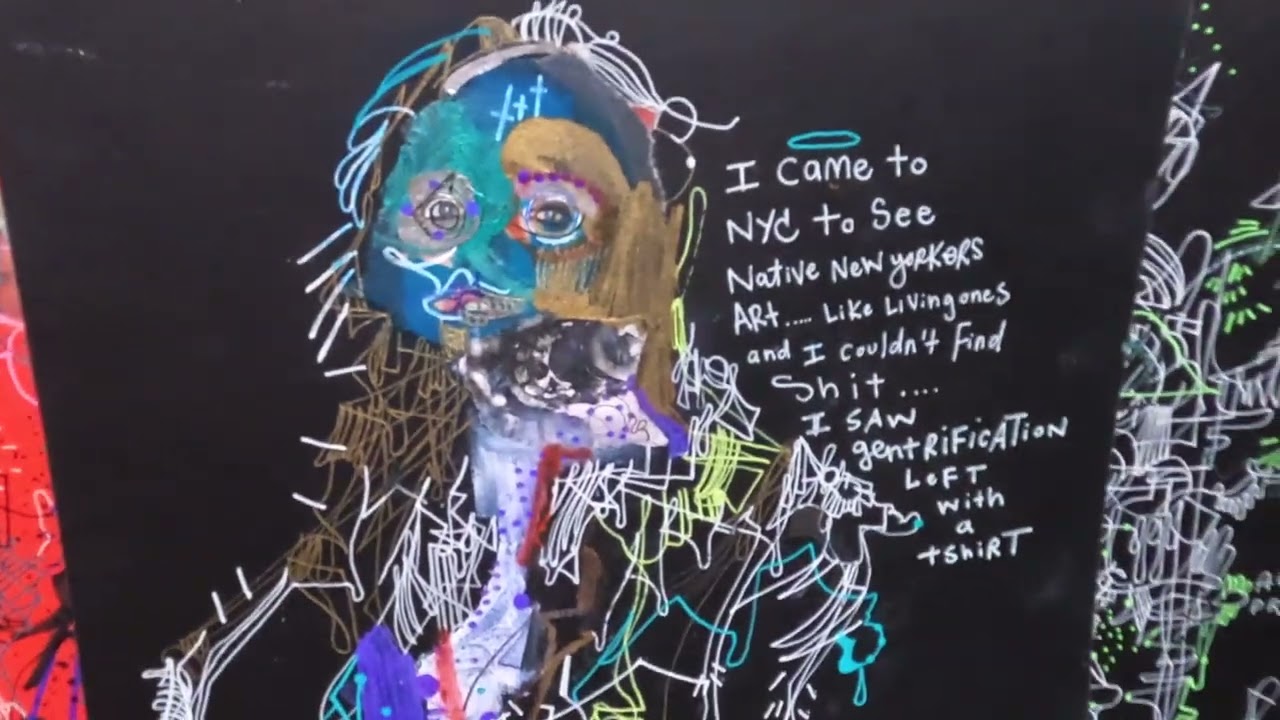 I came to
NYC to See
Native New yoRKeRS
ARt.... Like Living ones
and I couldn't Find
Shit....
I SAW
gentRiFiCATiON
LeFT
with
a
tshiRT